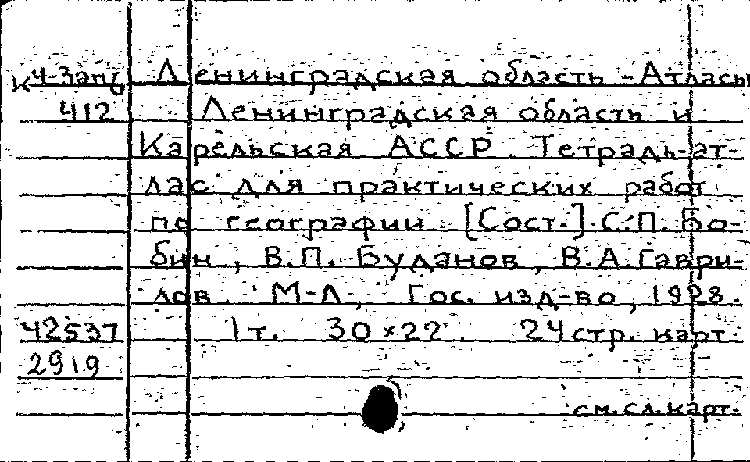 К4-Зап6 Ленинградская область - Атласы
412 Ленинградская область и
Карельская АССР. Тетрадь-ат-
лас для практических работ
по географии. [Сост.] С.П. Бо-
бин, В.П. Буданов, В.А. Гаври-
лов. М-Л, Гос. изд-во, 1928.
42537 1 т. 30×22. 24 стр. карт.
2919
см. сл. карт.